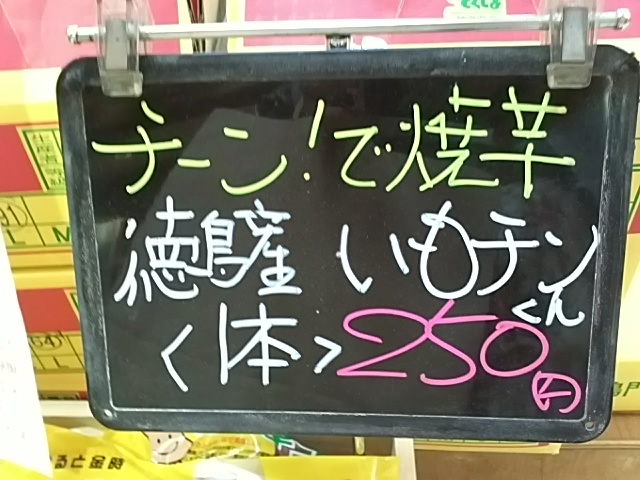 チーン!で焼芋
徳島産 いもチンくん
<1本>250円
ると金時